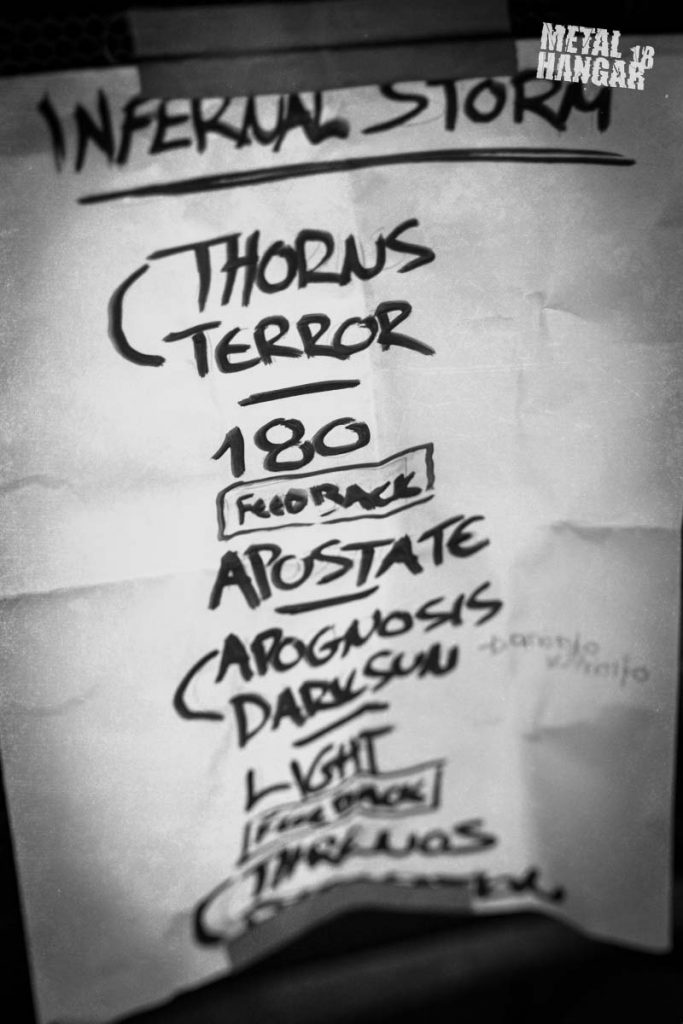 METAL 18
HANGAR
INFERNAL STORM
THORNS
TERROR
180
FEEDBACK
APOSTATE
APOGNOSIS
DARK SUN
LIGHT
FEEDBACK
THRENOS